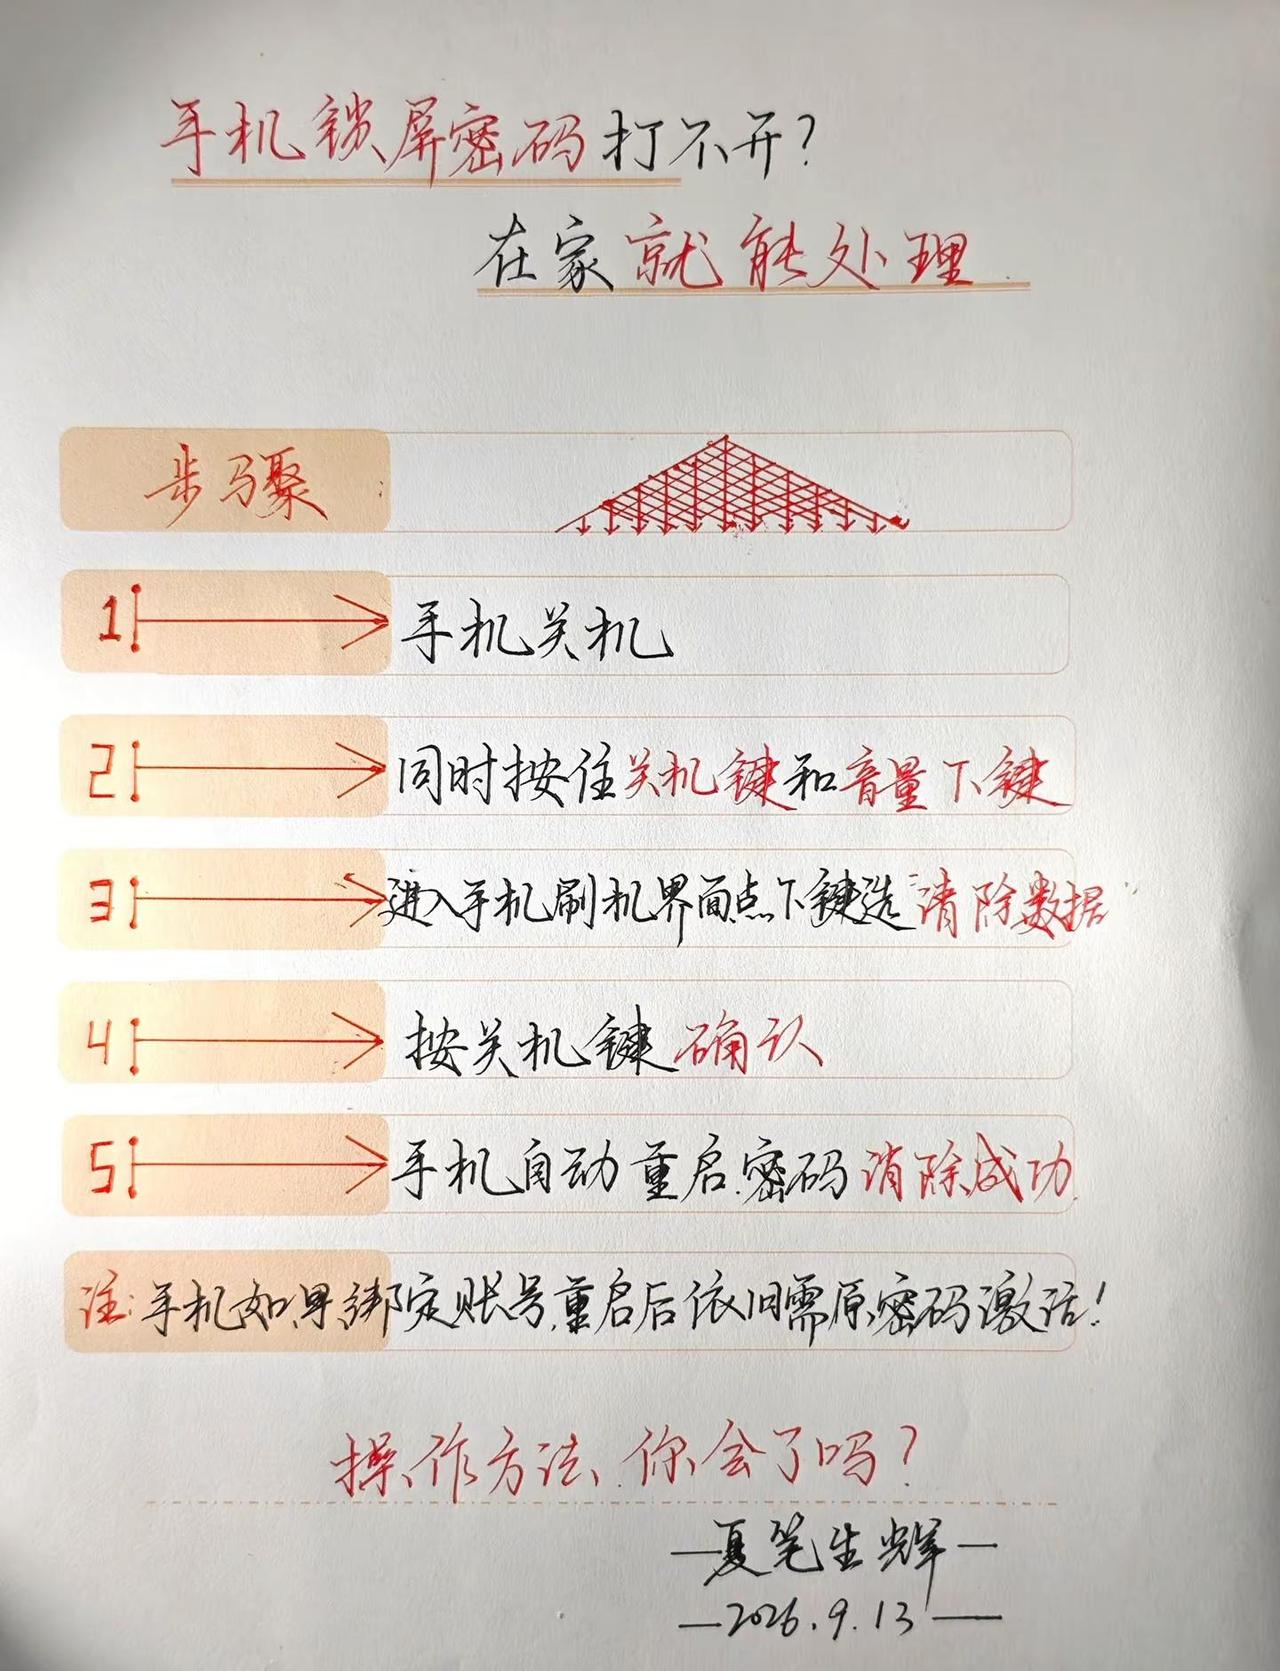 手机锁屏密码打不开？
在家就能处理
步骤
1 手机关机
2 同时按住关机键和音量下键
3 进入手机刷机界面点下键选“清除数据”
4 按关机键确认
5 手机自动重启.密码消除成功.
注:手机如果绑定账号.重启后依旧需原密码激活！
操作方法、你会了吗？
—夏笔生辉—
—2026.9.13—